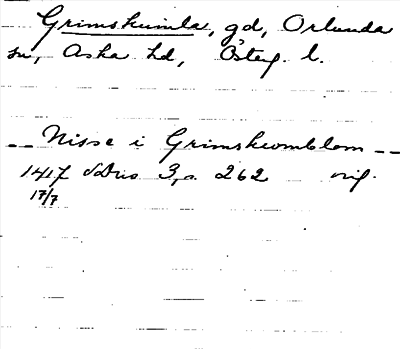 Grimskumla, gd, Örlunda
sn, Aska hd, Österg. l.
-- Nisse i Grimskwmblom --
1417 SDns 3, s. 262 orig.
17/7